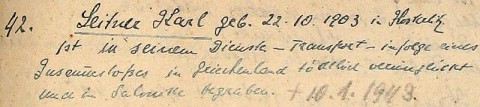 42. Leitner Karl geb. 22. 10. 1903 in
ist in seinem Dienste – Transport – infolge eines
Zusammenstoßes in Griechenland tödlich verunglückt
und in Saloniki begraben. + 10. 1. 1943.